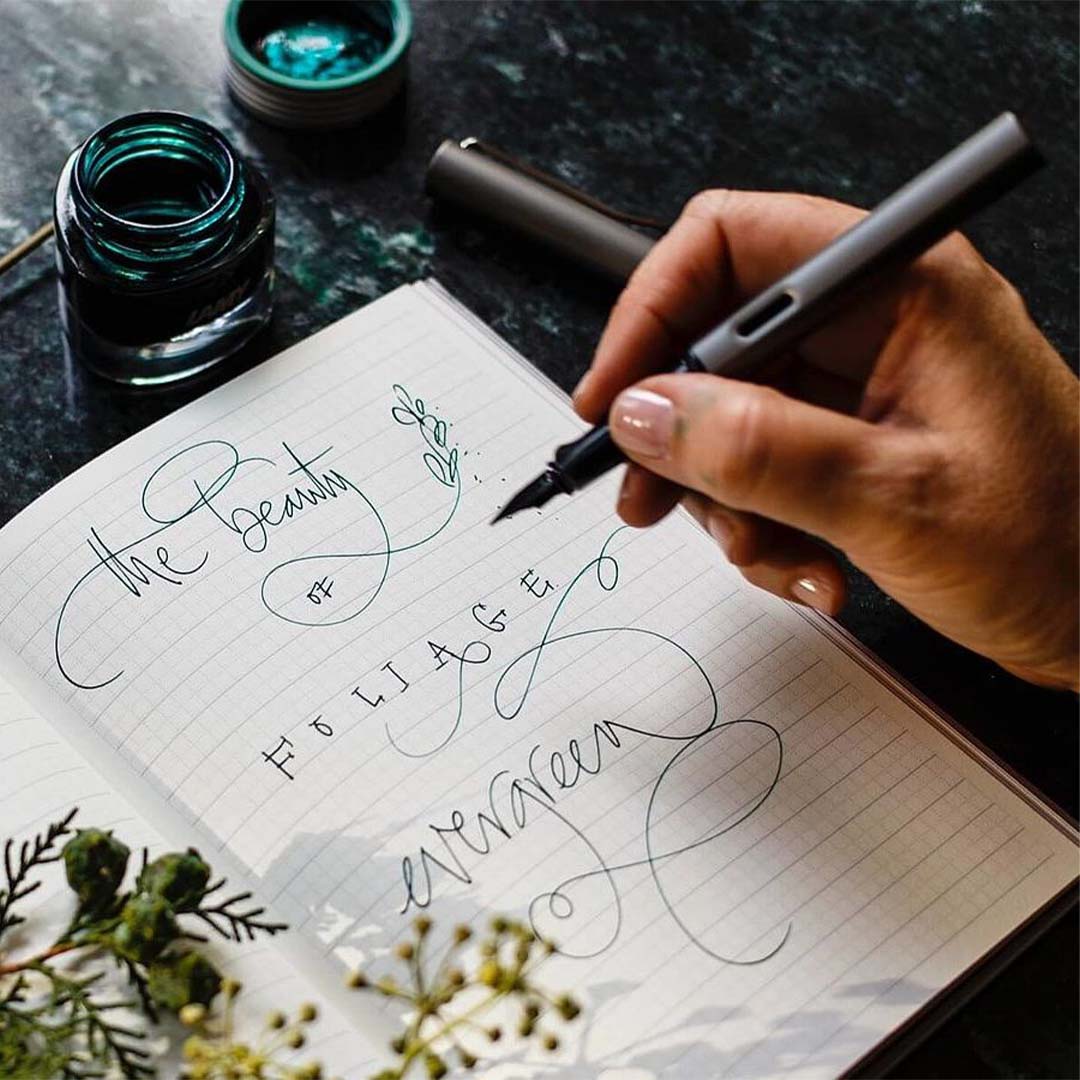 the beauty
OF
FOLIAGE
evergreen
LAMY